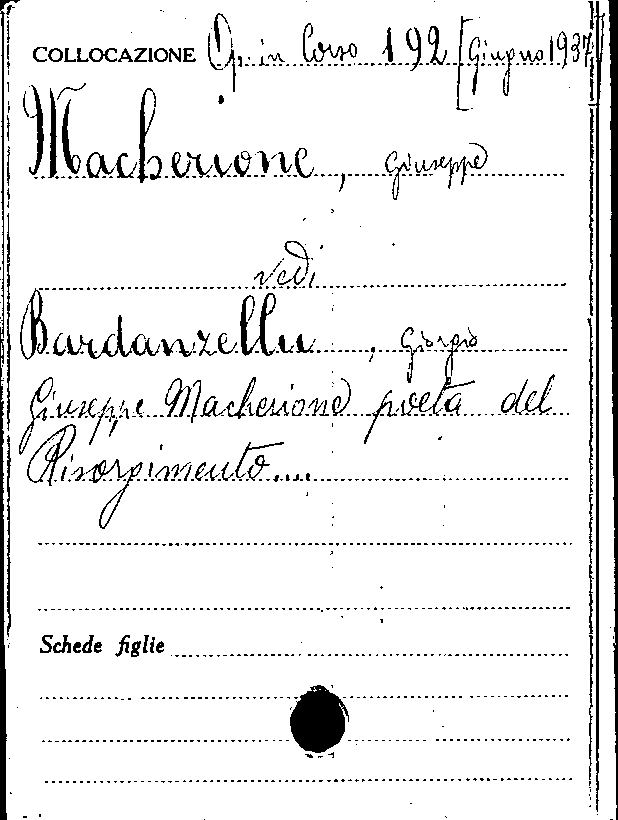 COLLOCAZIONE Op. in Corso 192 [Giugno 1937
Macherione, Giuseppe
vedi
Bardanzellu, Giorgio
Giuseppe Macherione poeta del
Risorgimento....
Schede figlie